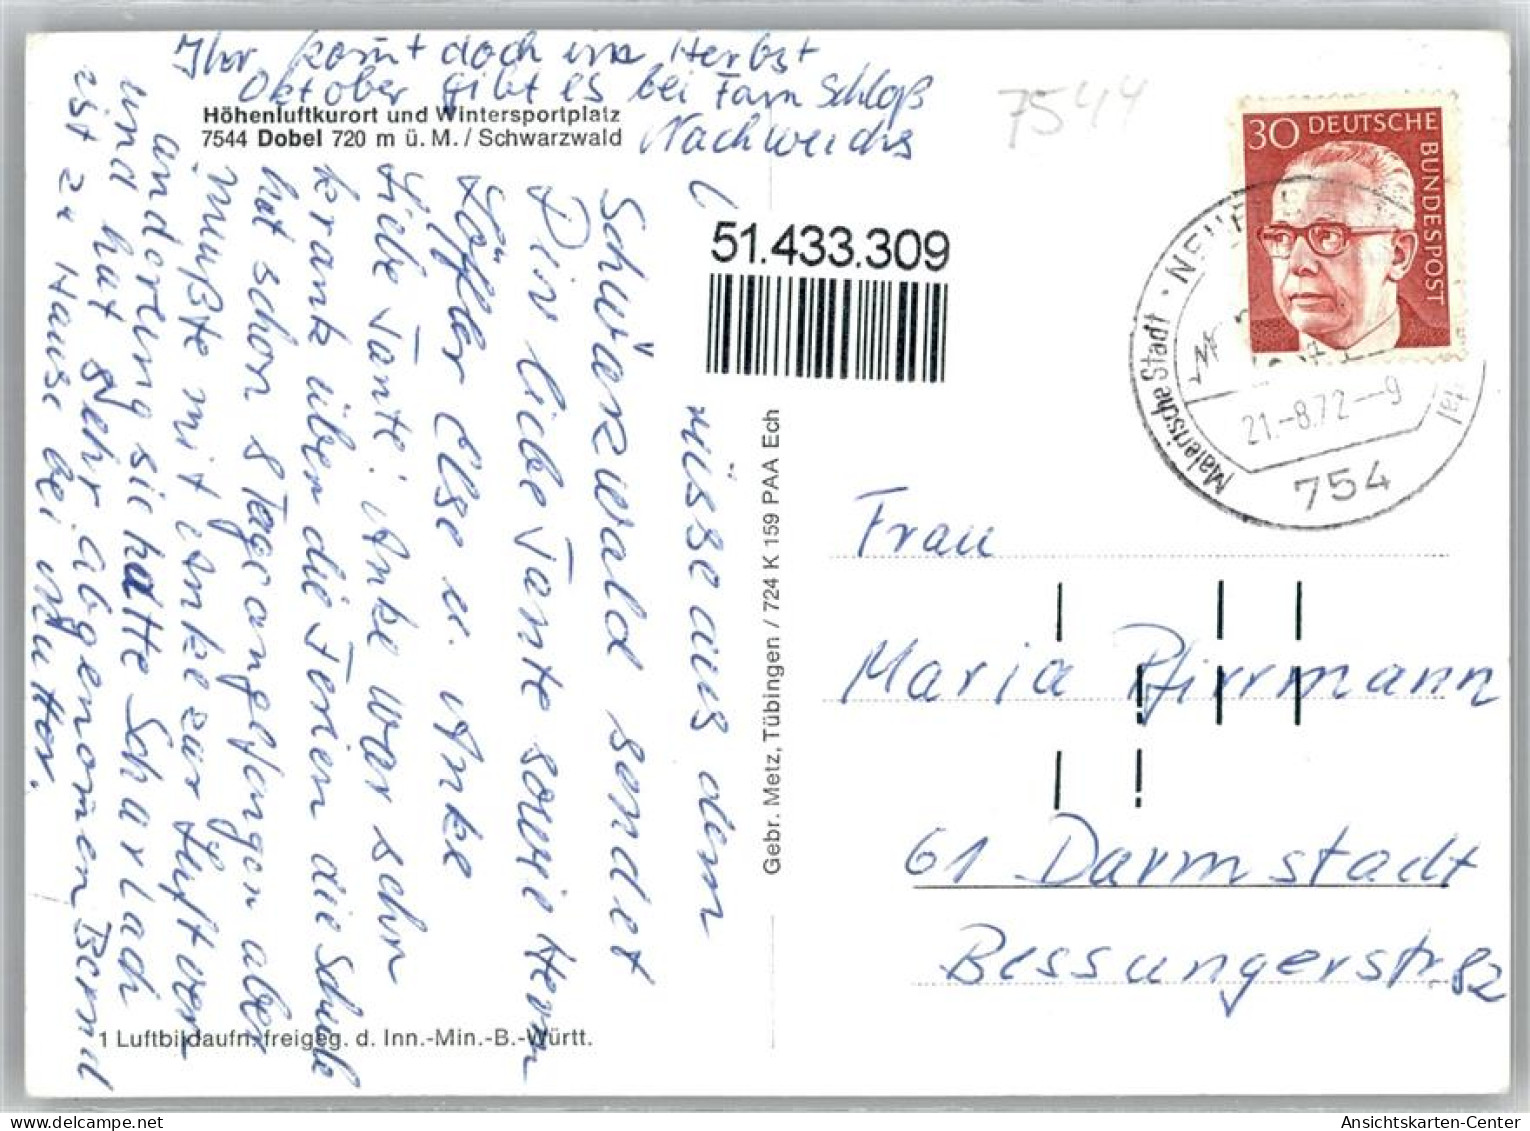 Ihr komt doch im Herbst
Oktober gibt es bei Fam Schloß
Nachwuchs
Höhenluftkurort und Wintersportplatz
7544 Dobel 720 m ü. M. / Schwarzwald
7544
30 DEUTSCHE
BUNDESPOST
Malerische Stadt
21.-8.72--9
754
51.433.309
rüsse aus dem
Schwarzwald sendet
Dir liebe Tante sowie Herrn
Löffler Else u. Anke
Liebe Tante! Anke war sehr
krank über die Ferien die Schule
hat schon 8 Tage angefangen aber
mußte mit Anke zur Luftver
änderung sie hatte Scharlach
und hat sehr abgenomen Bernd
ist zu Hause bei Mutter.
1 Luftbildaufn. freigeg. d. Inn.-Min.-B.-Württ.
Gebr. Metz, Tübingen / 724 K 159 PAA Ech
Frau
Maria Pfirrmann
61 Darmstadt
Bessungerstr. 82
Ansichtskarten-Center